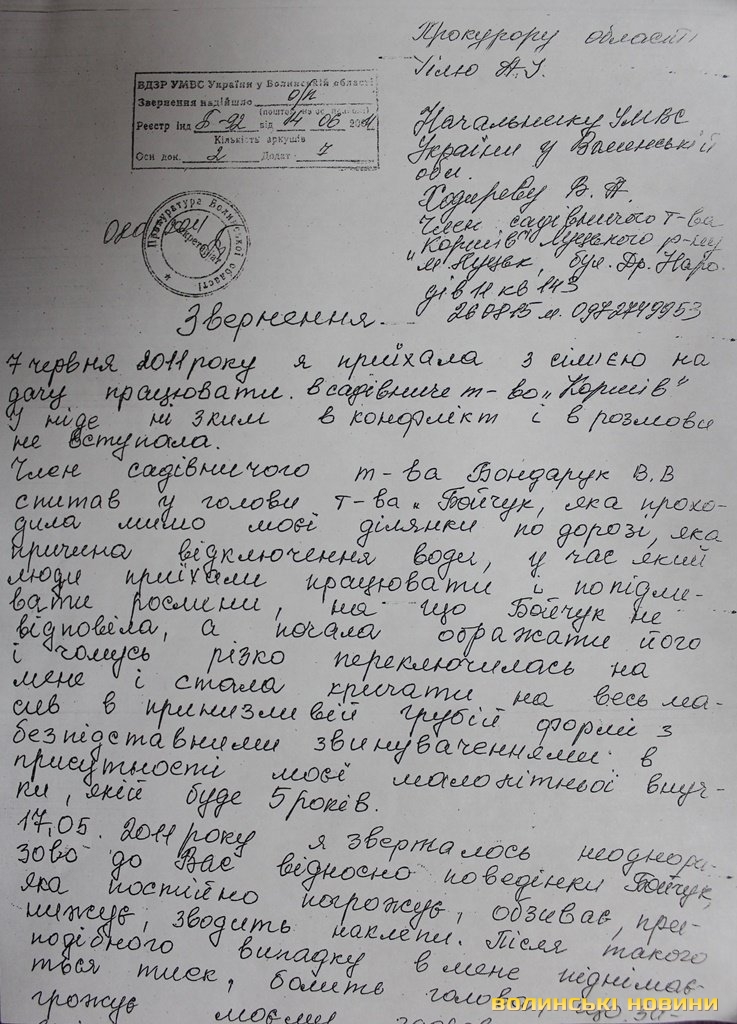 Прокурору області
Гілю А.І.
ВДЗР УМВС України у Волинській області
Звернення надійшло о/п
Реєстр інд Б-92 від 14 06 2011
Кількість аркушів
Осн док. 2 Додат. 7
Начальнику УМВС
України у Волинській
обл.
Ходиреву В. П.
Член садівничого т-ва
"Коршів" Луцького р-ну
м Луцьк, бул. Др. Наро-
дів 11 кв 143
260815 м. 0972749953
Прокуратура Волинської області
Звернення.
7 червня 2011 року я приїхала з сім'єю на
дачу працювати. в садівниче т-во „Коршів"
У ніде ні зким в конфлікт і в розмови
не вступала.
Член садівничого т-ва Бондарук В.В
спитав у голови т-ва „Бойчук, яка прохо-
дила мимо моєї ділянки по дорозі, яка
причина відключення води, у час який
люди приїхали працювати і попідли-
вати рослини, на що Бойчук не
відповіла, а почала ображати його
і чомусь різко переключилась на
мене і стала кричати на весь ма-
сив в принизливій грубій формі з
безпідставними звинуваченнями в
присутності моєї малолітньої внуч-
ки, якій буде 5 років.
17.05. 2011 року я звержалось неоднора-
зово до Вас відносно поведінки Бойчук,
яка постійно погрожує, обзиває, при-
нижує, зводить наклепи. Після такого
подібного випадку в мене піднімає-
ться тиск, болить голова,
грожує моєму
волинські новини